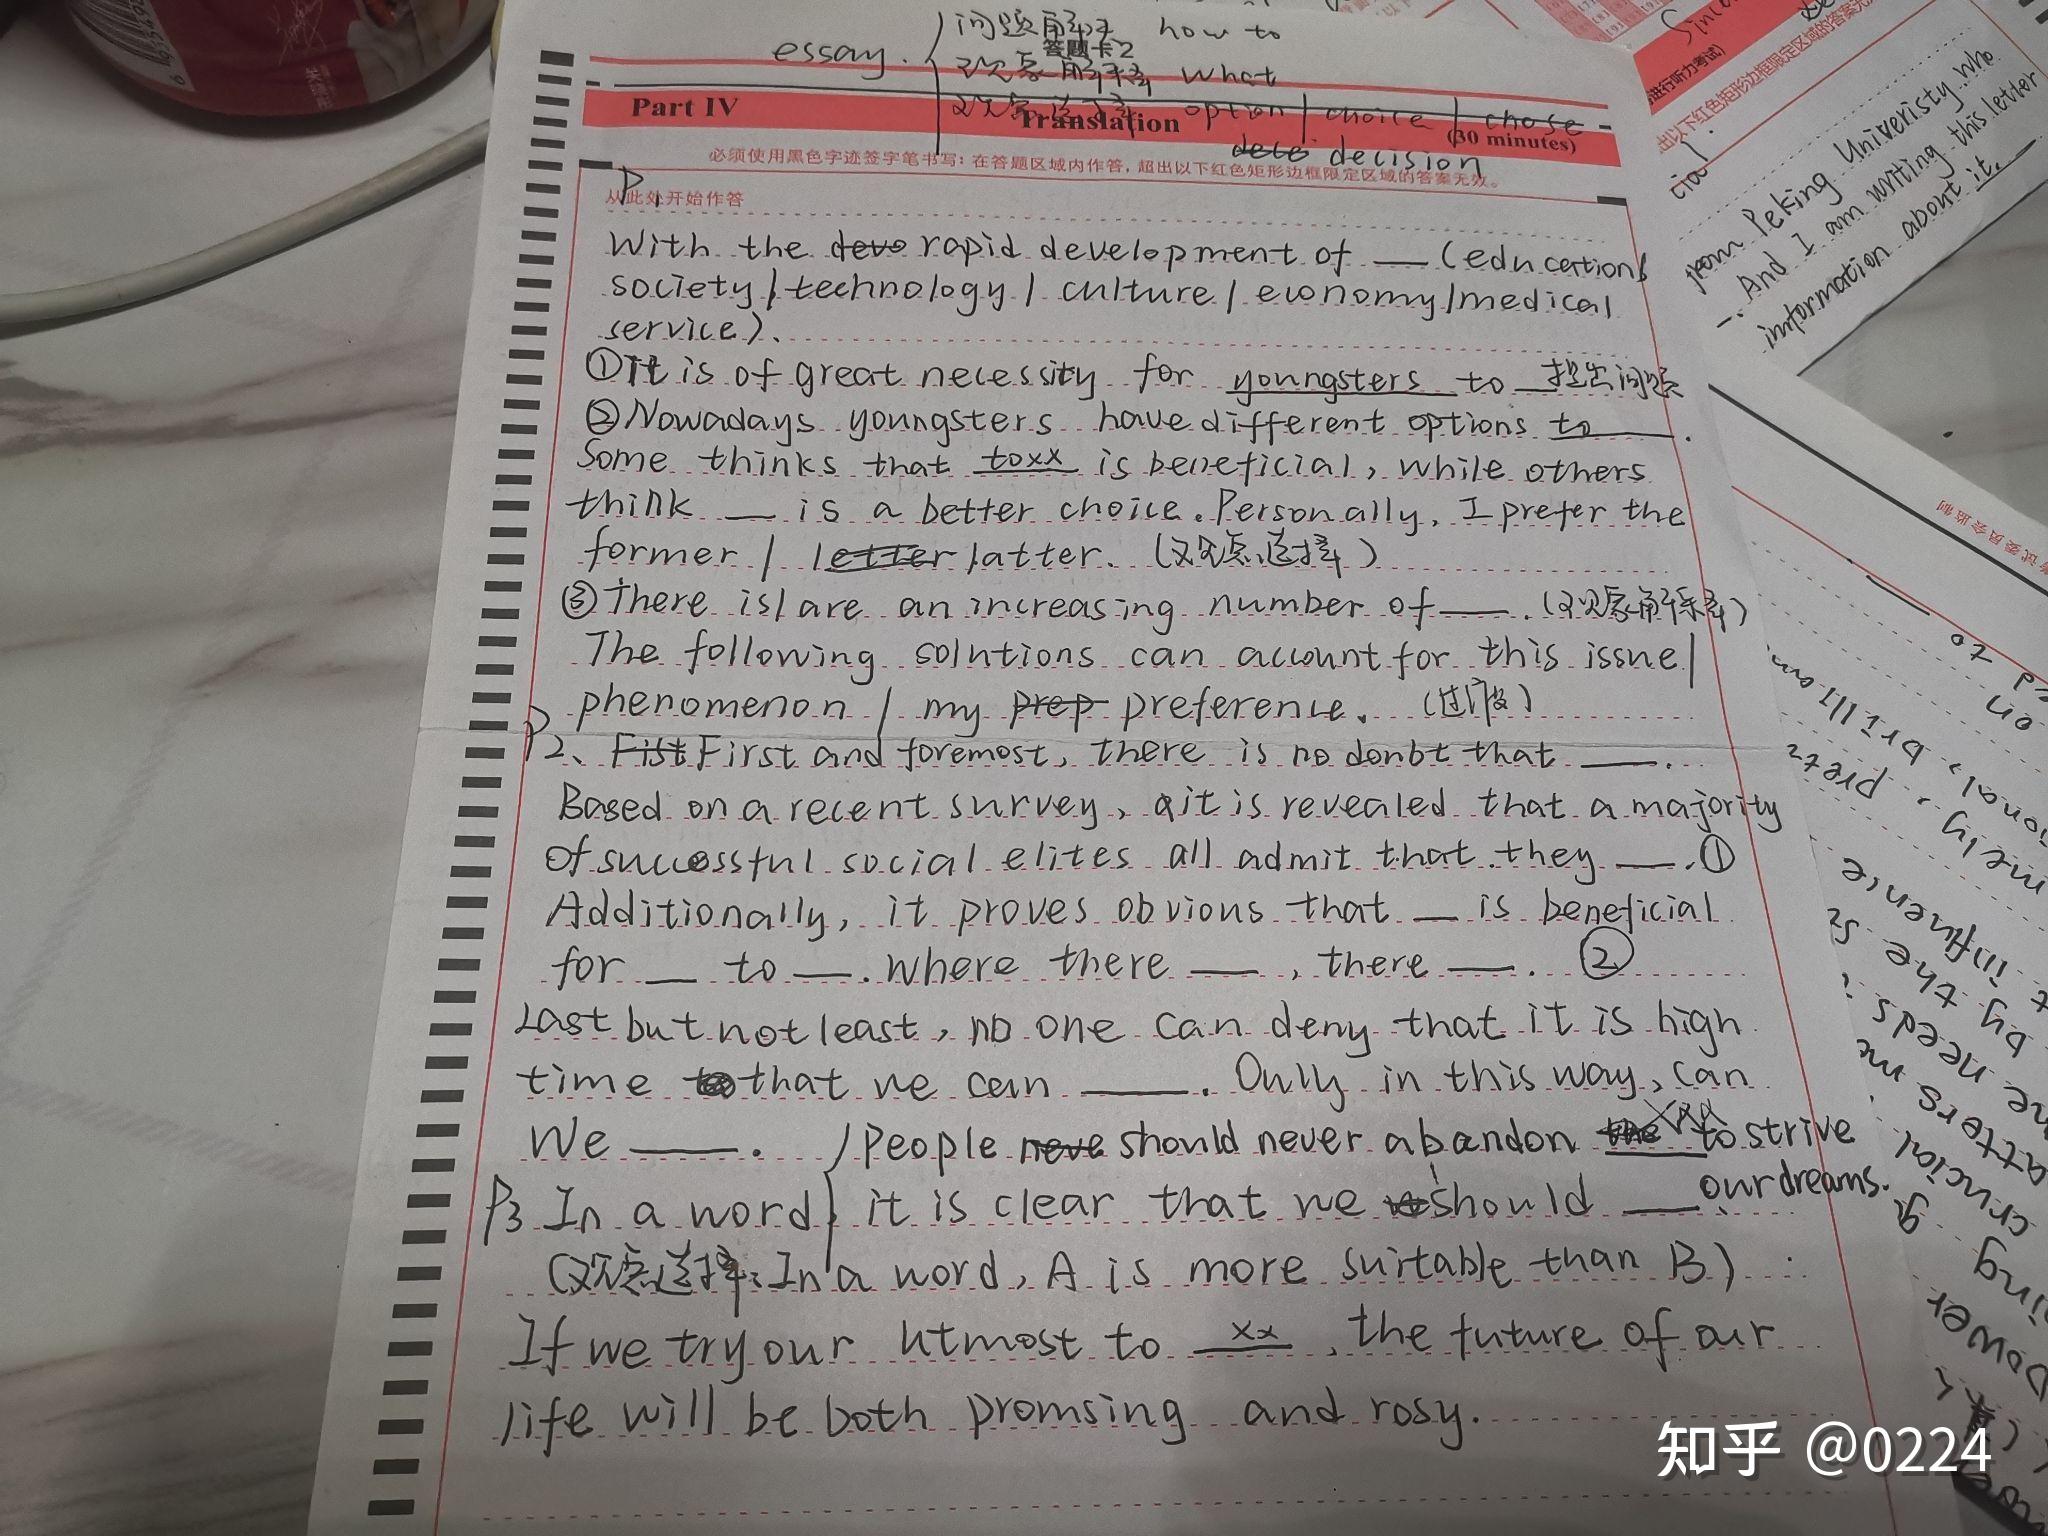 essay. 问题解决 how to
答题卡2
观点解释 what
观点选择 option / choice / chose
decision
Part IV Translation (30 minutes)
必须使用黑色字迹签字笔书写:在答题区域内作答,超出以下红色矩形边框限定区域的答案无效。
P1
从此处开始作答
With the rapid development of ___ (education/
society/technology/ culture/ economy/medical
service).
①It is of great necessity for youngsters to ___提出问题
②Nowadays youngsters have different options to ___.
Some thinks that toxx is beneficial, while others
think ___ is a better choice. Personally, I prefer the
former / latter. (观点选择)
③There is/are an increasing number of ___. (观点解释)
The following solutions can account for this issue/
phenomenon / my preference. (过渡段)
P2、First and foremost, there is no doubt that ___.
Based on a recent survey, it is revealed that a majority
of successful social elites all admit that they ___. ①
Additionally, it proves obvious that ___ is beneficial
for ___ to ___. Where there ___, there ___. ②
Last but not least, no one can deny that it is high
time that we can ___. Only in this way, can
We ___.
People should never abandon to strive
our dreams.
P3 In a word, it is clear that we should ___
(观点选择: In a word, A is more suitable than B)
If we try our utmost to xx, the future of our
life will be both promsing and rosy.
from Peking Univeristy who
And I am writing this letter
information about it.
知乎 @0224